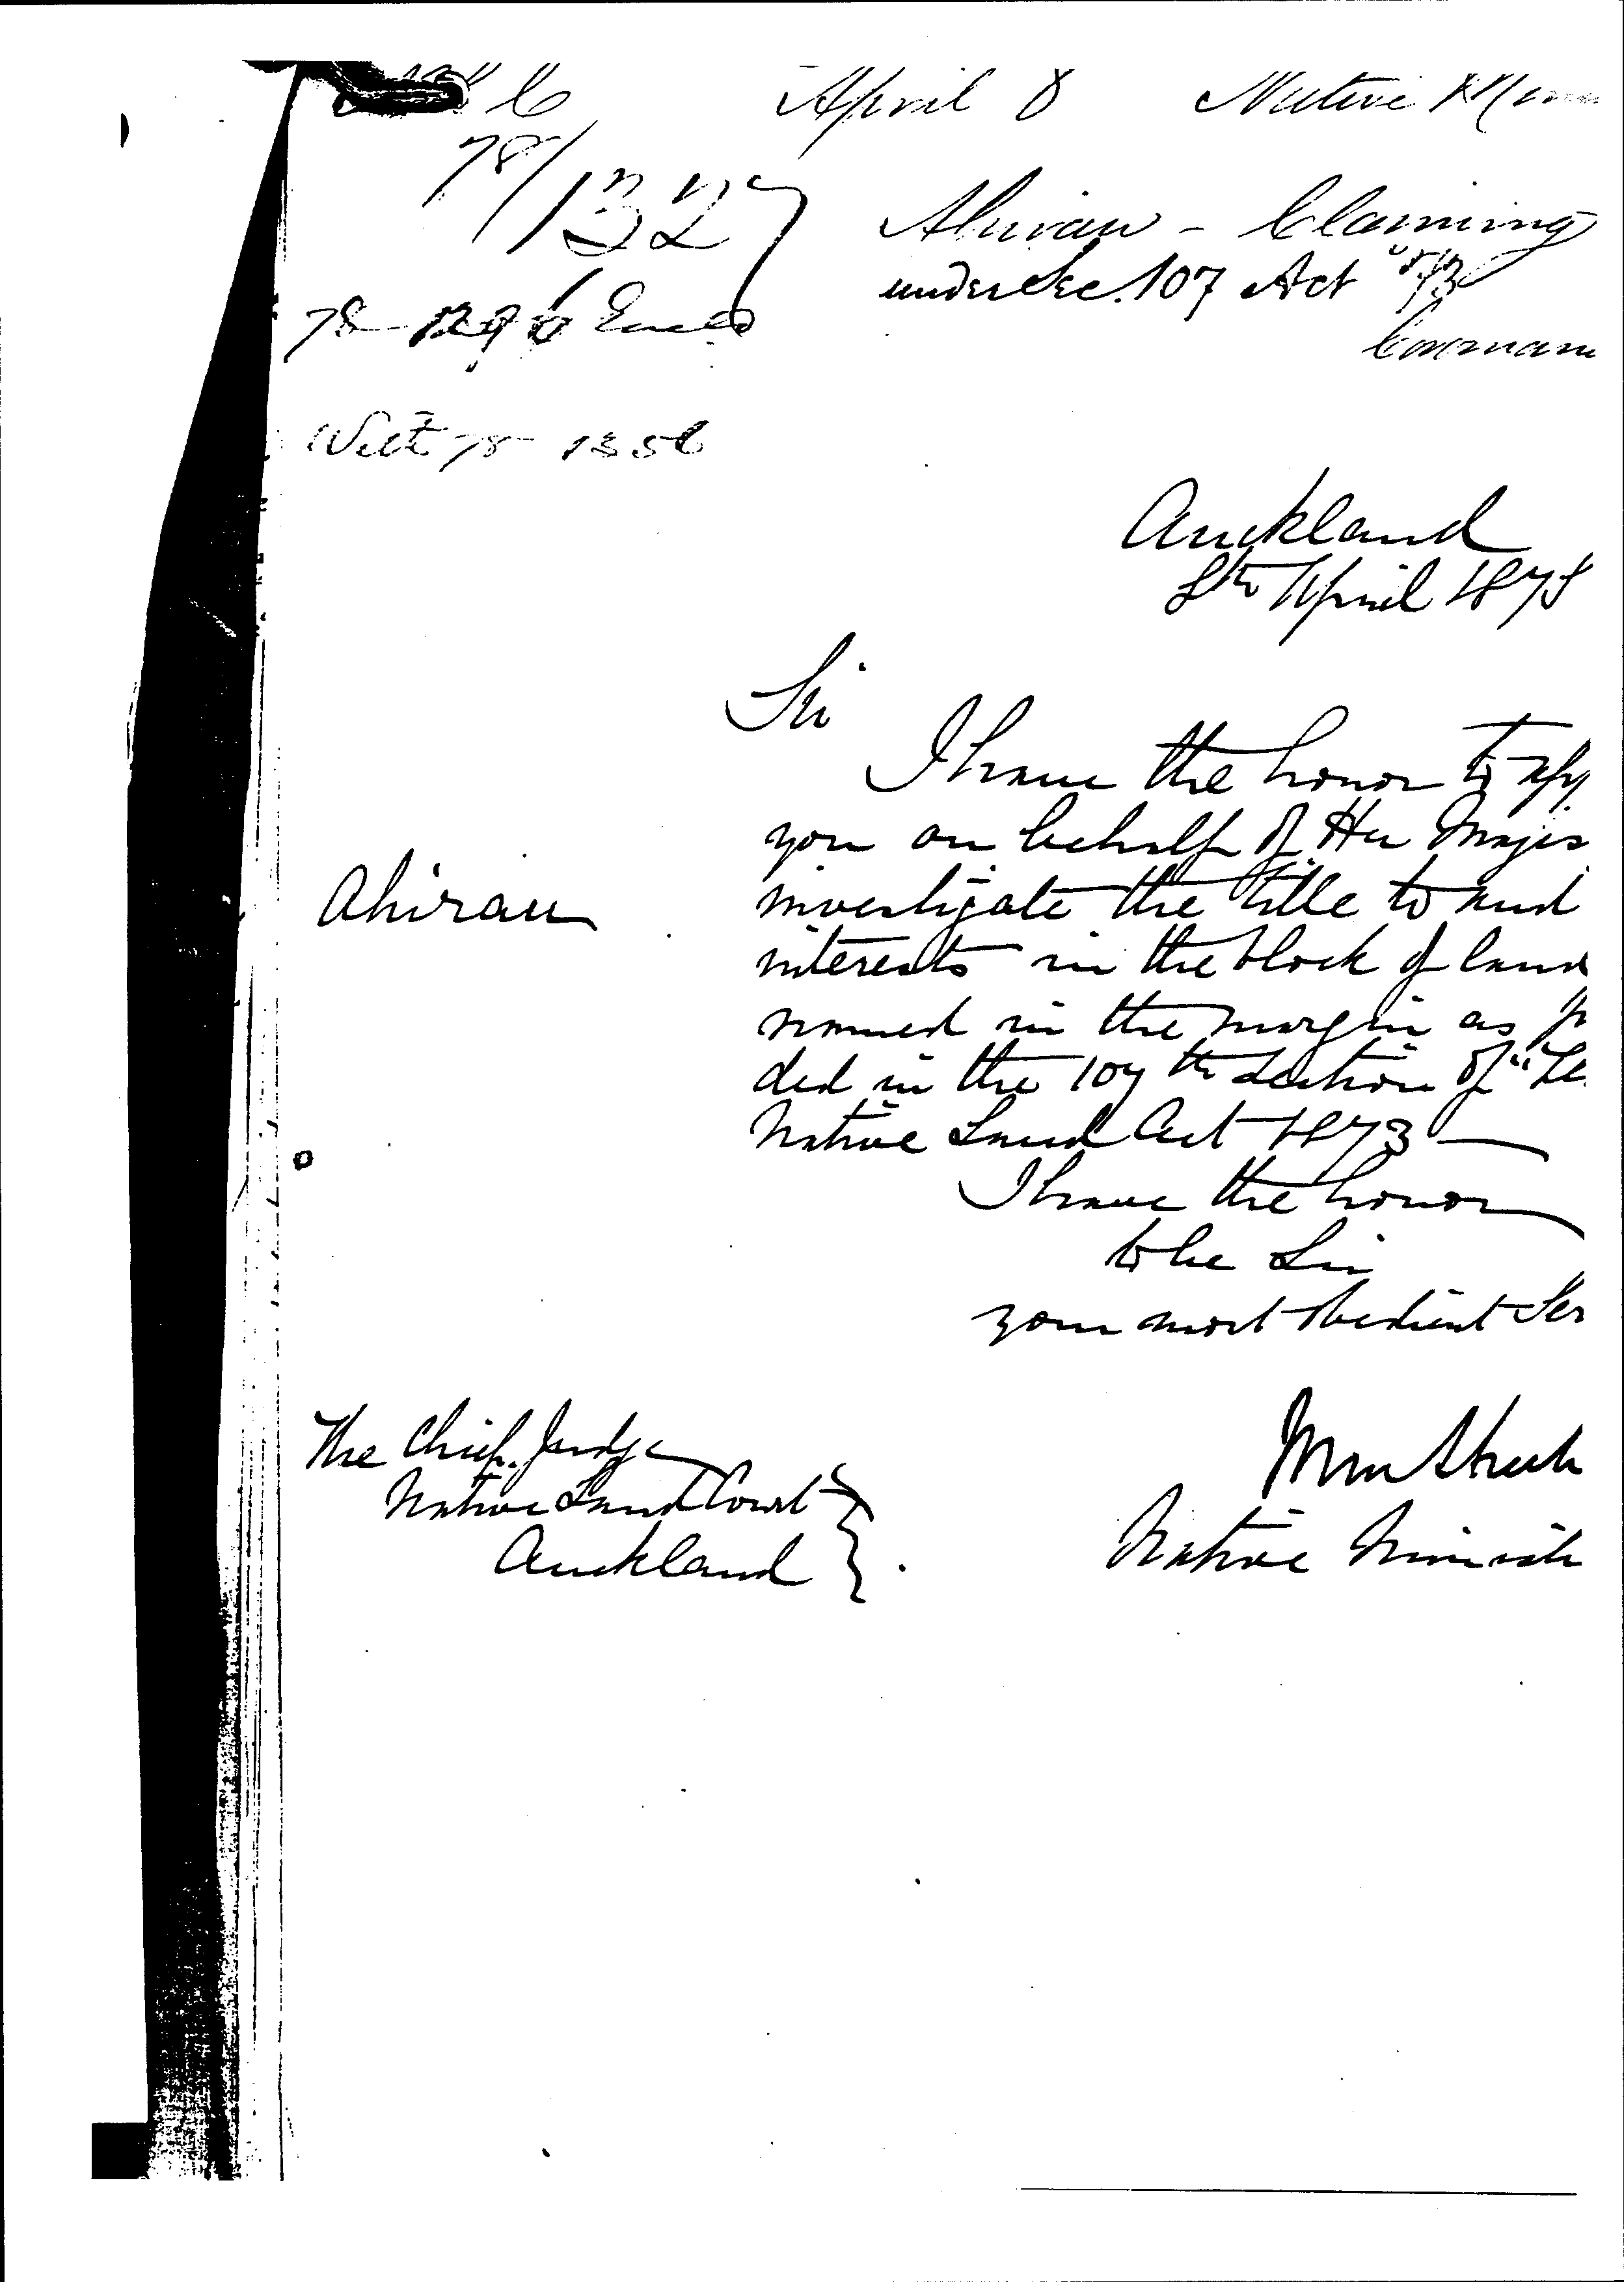 April 8 Native
78/1327
Ahirau - Claiming
under Sec. 107 Act 73
78
78 1356
Auckland
8th April 1878
Sir
I have the honor to app
you on behalf of Her Majes
investigate the title to and
Ahirau
interests in the block of land
named in the margin as pr
ded in the 107th Section of "The
Native Land Act 1873 —
I have the honor
to be Sir
your most obedient Ser
The Chief Judge
Native Land Court
Auckland
Native Ministe